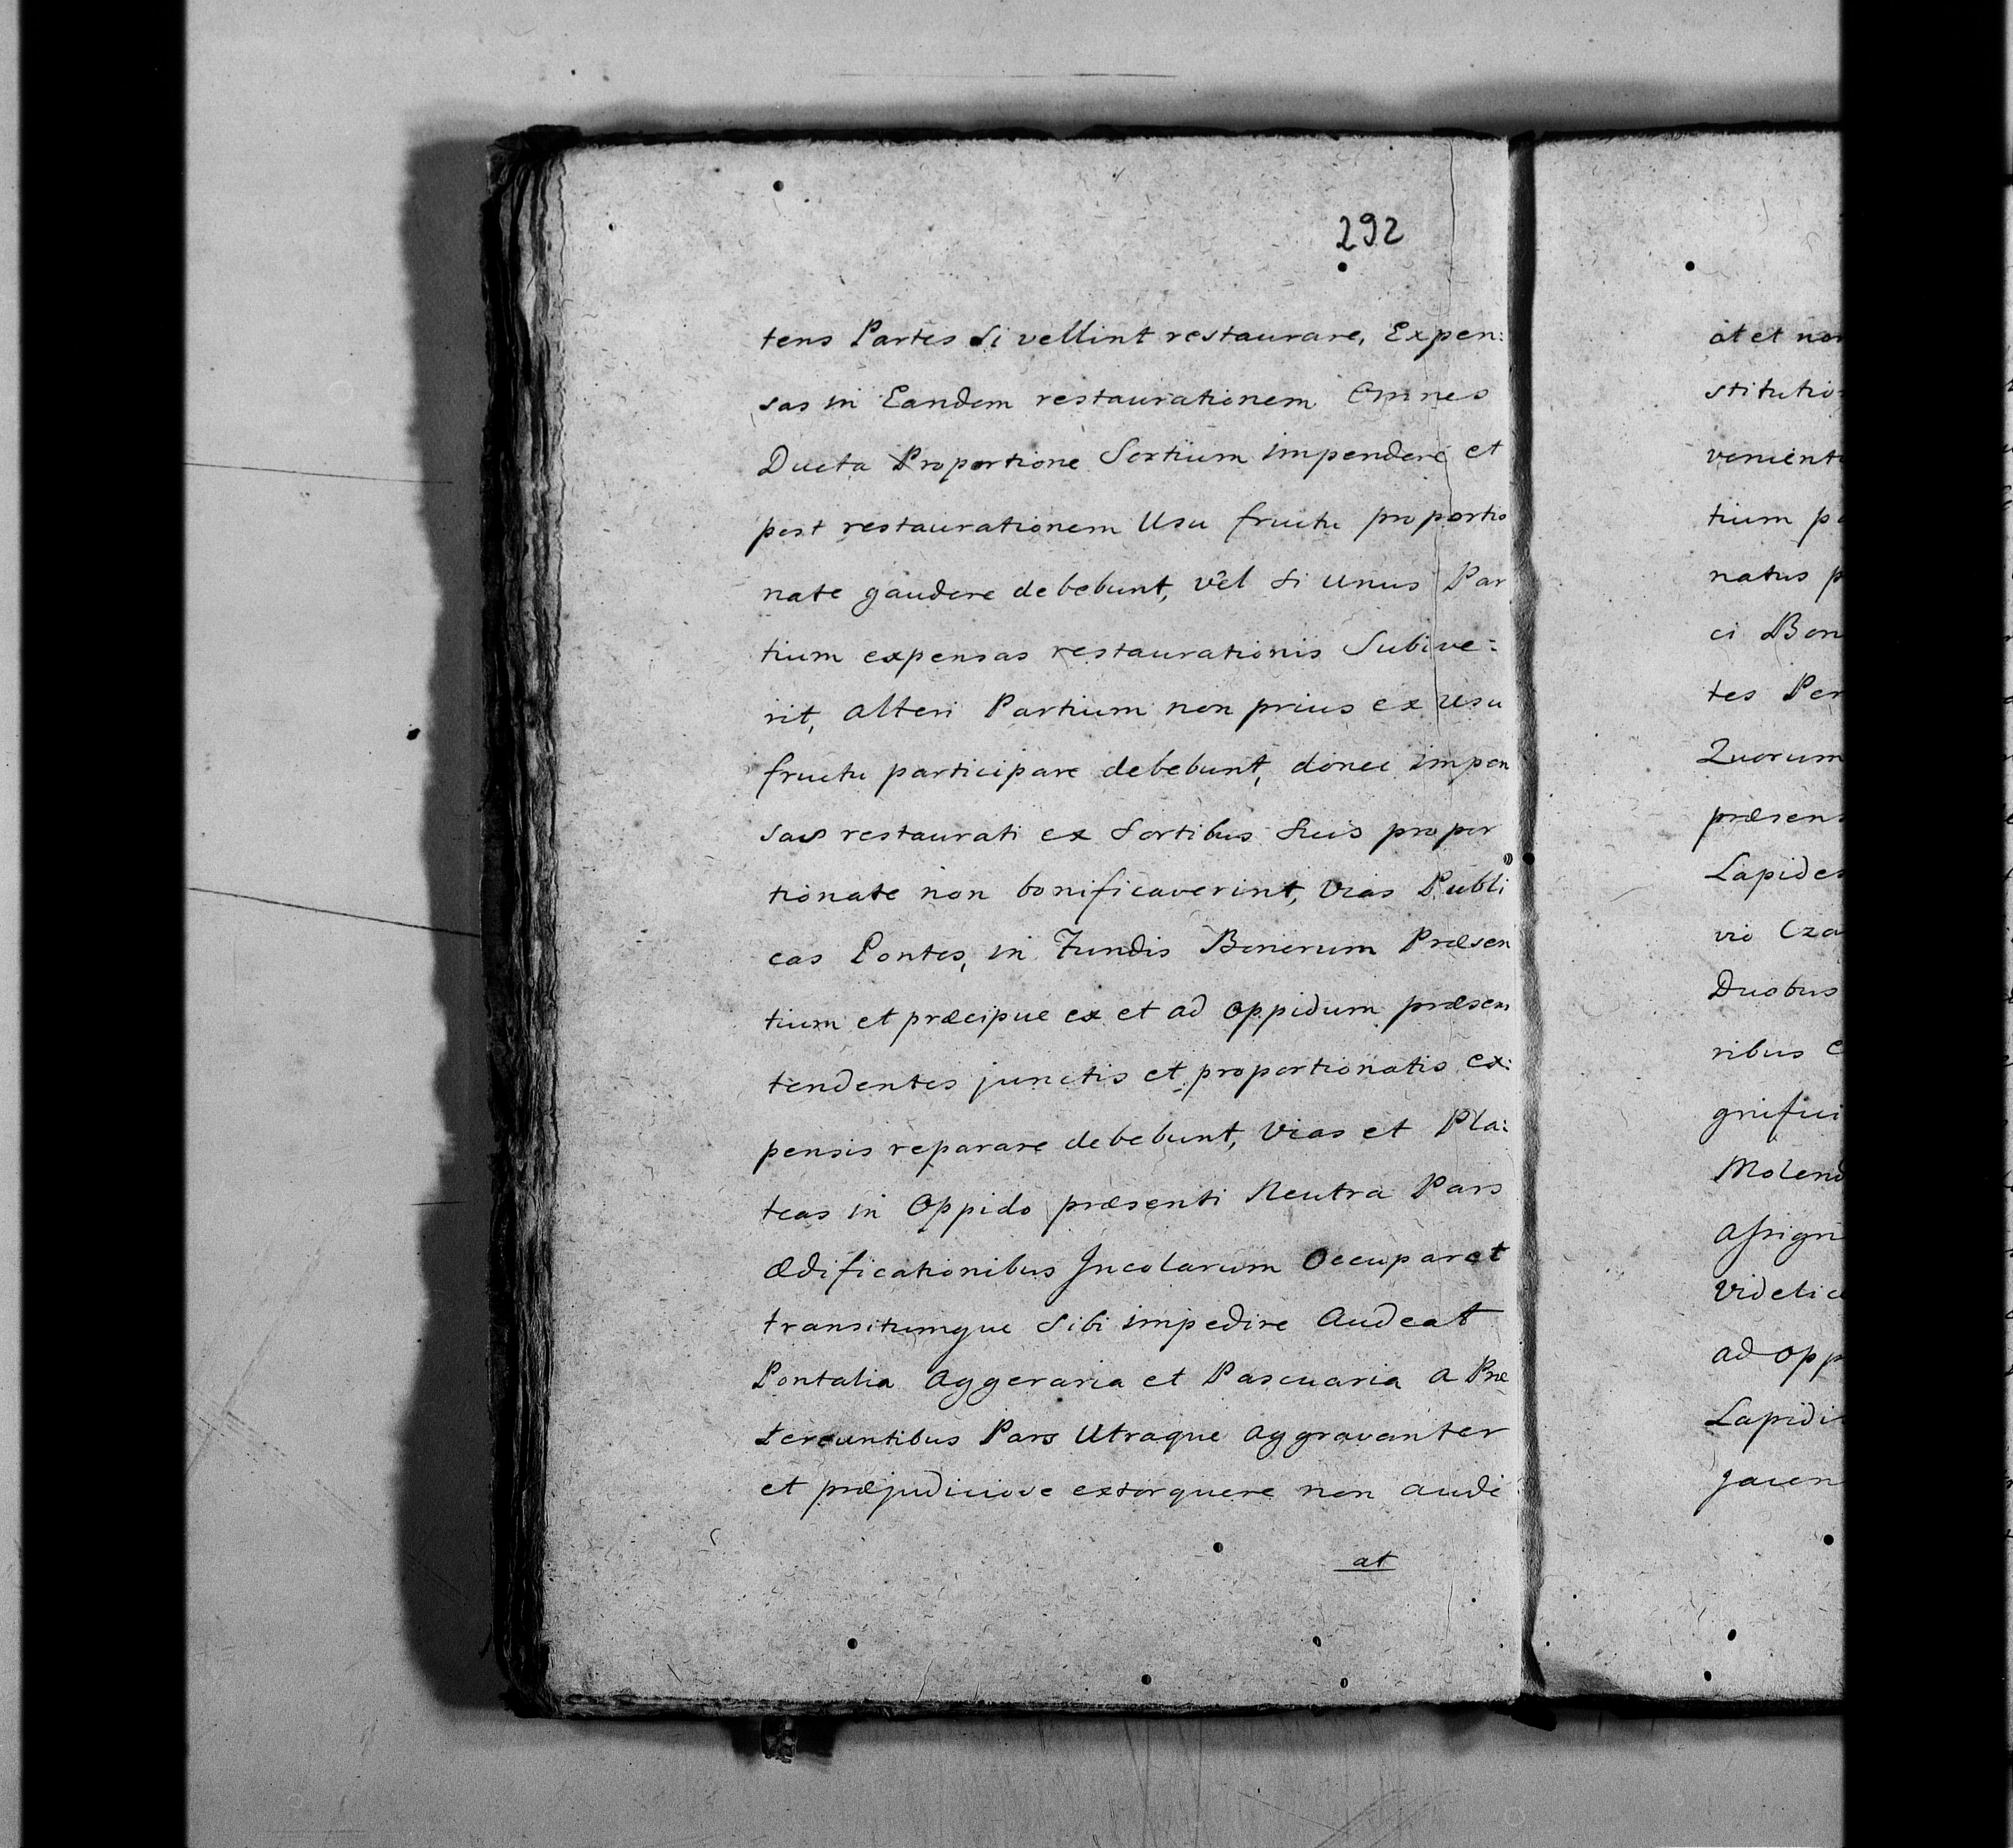 292
tens Partes si vellint restaurare, Expen:
sas in Eandem restaurationem Omnes
Ducta Proportione Sortium impendere et
post restaurationem Usu fructu proportio
nate gaudere debebunt, vel si unus Par
tium expensas restaurationis Subive:
rit, alteri Partium non prius ex Usu
fructu participare debebunt, donec impen
sas restaurati ex Sortibus Suis propor
tionate non bonificaverint, Vias Publi
cas Pontes, in Fundis Bonorum Præsen
tium et præcipue ex et ad oppidum præsens
tendentes junctis et proportionatis ex:
pensis reparare debebunt, Vias et Pla:
teas in Oppido præsenti Neutra Pars
ædificationibus Incolarum Occuparet
transitumque Sibi impedire Audeat
Pontalia Aggeraria et Pascuaria a Præ
tereuntibus Pars Utraque aggravanter
et præjudiciose extorquere non audé
at
at et non
stitutio
venient
tium p
natus p
ci Bon
tes Per
Quorum
præsens
Lapides
vio Cza
Duobus
ribus C
gnifici
Molend
Assign
Videlic
ad opp
Lapidi
jacen